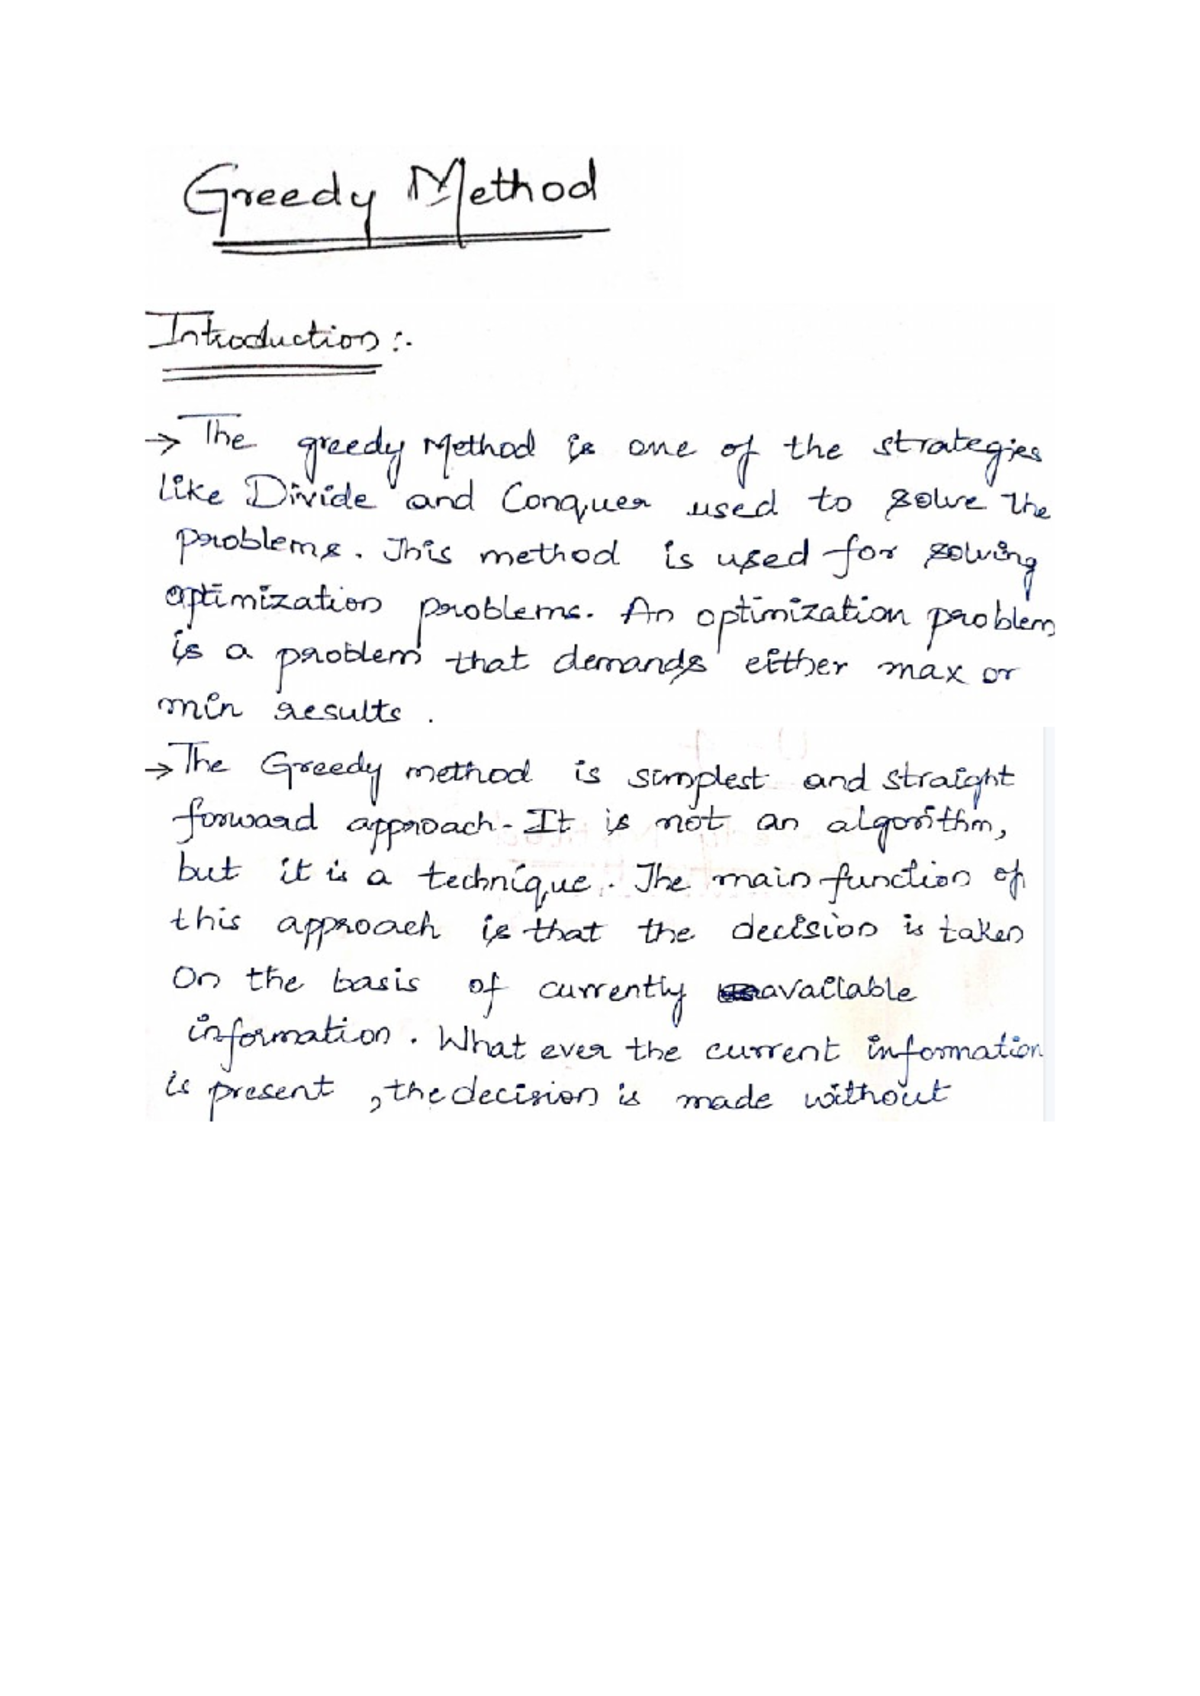 Greedy Method
Introduction :-
→ The greedy Method is one of the strategies
like Divide and Conquer used to solve the
problems. This method is used for solving
optimization problems. An optimization problem
is a problem that demands either max or
min results .
→ The Greedy method is simplest and straight
forward approach. It is not an algorithm,
but it is a technique. The main function of
this approach is that the decision is taken
On the basis of currently available
information. What ever the current information
is present , the decision is made without